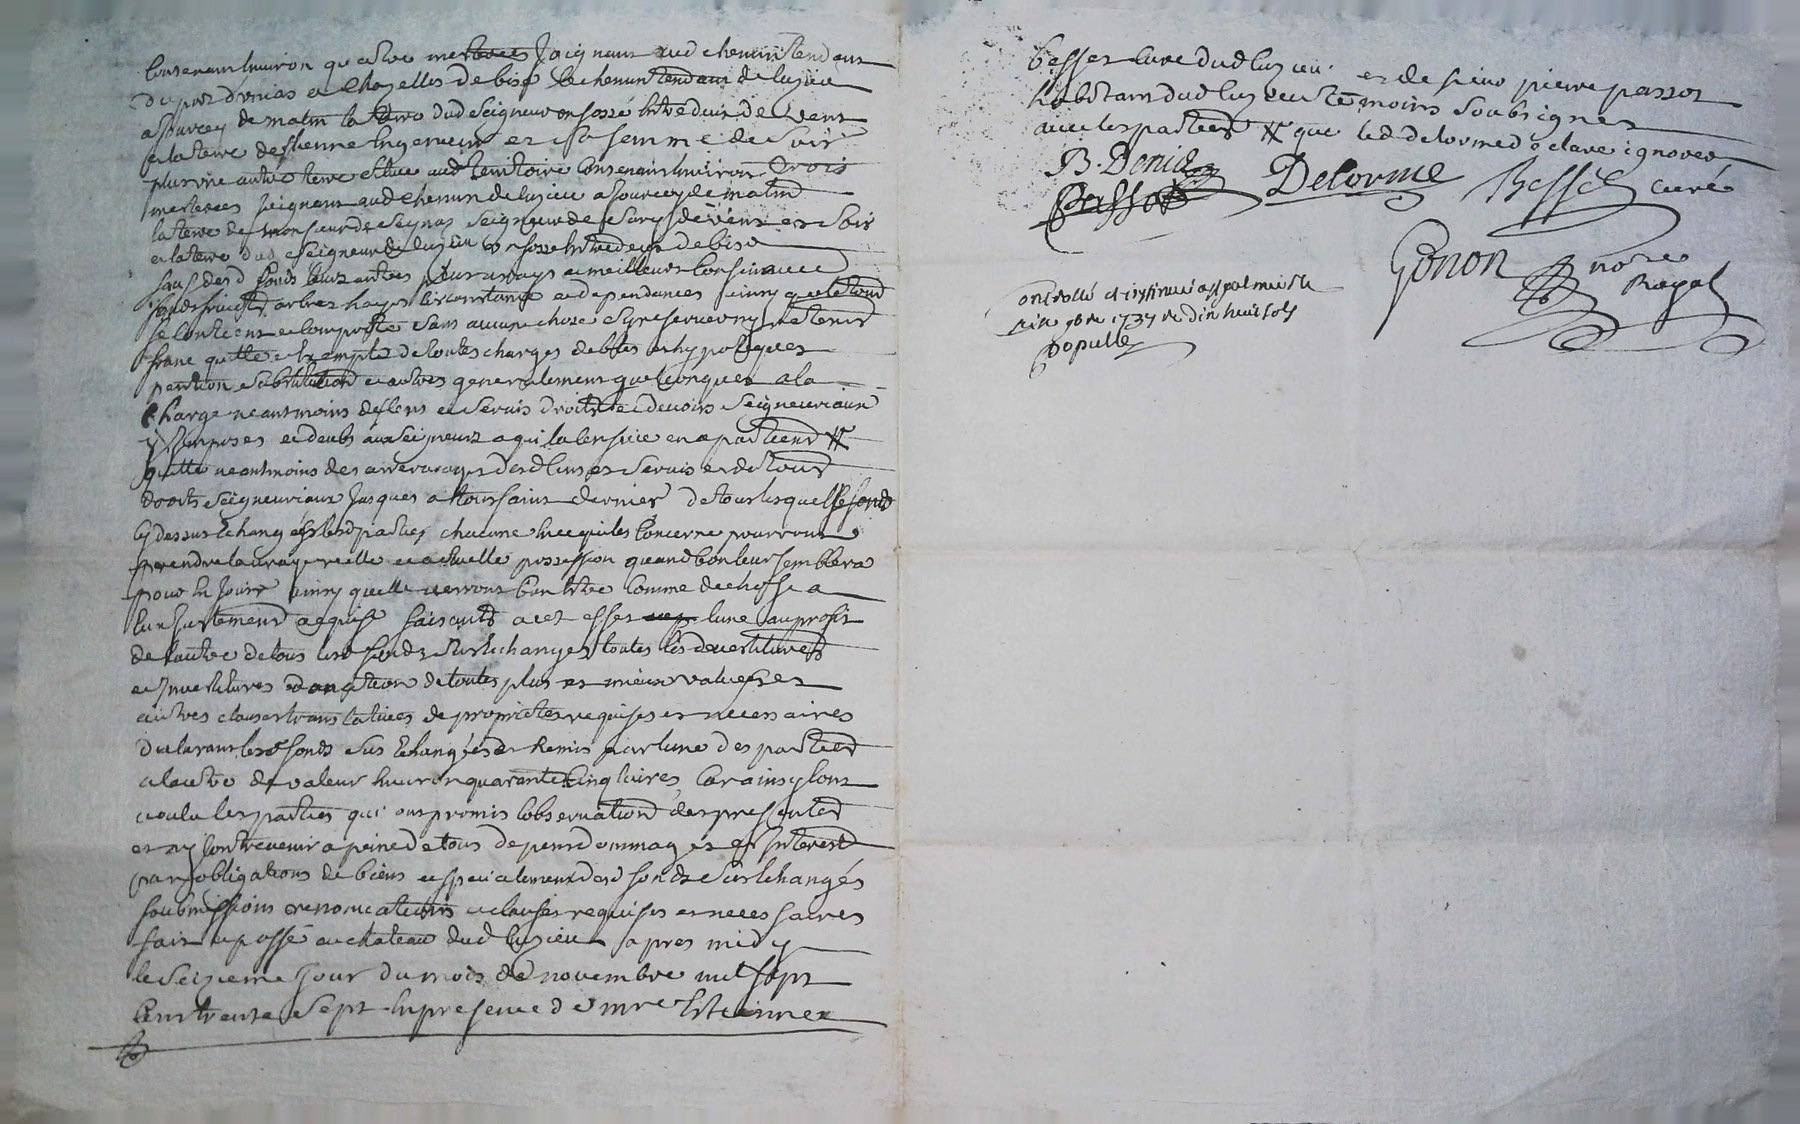 Contenant environ quatre meterees Joignant aud chemin tendant
du port d'vnias a Chazelles de bise le chemin tendant de luzieu
a sourcey de matin la terre dud seigneur un fossé entredeux de vent
a la terre destienne et sa femme de soir
plus une autre terre située aud territoire contenant environ trois
meterees joignant aud chemin de luzieu a sourcey de matin
la terre de monsieur de seigneur de de vent et soir
a la terre dud seigneur de luzieu un fosse entredeux de bise
sauf desd fonds leurs autres plus vrays et meilleurs confins avec
leurs arbres hayes circonstance et dependances ainsy que le tout
se contient et comporte sans aucune chose sy reserver ny retenir
franc quitte et exempte de toutes charges debtes et hypoteques
pention substitution et autres generalement quelconques a la
charge neantmoins des cens et servis droits et devoirs seigneuriaux
y imposes et deubs aux seigneurs a qui la censive en apartient
quitte neantmoins des arrerages desd cens et servis et de tous
droits seigneuriaux jusques a toussaint dernier de tous lesquels fonds
cy dessus echangés lesd parties chacune en ce qui les concerne pourront
prendre la vraye reelle et actuelle possession quand bon leur semblera
pour en jouir ainsy quelle verront bon etre comme de chose a
eux justement acquise faisants a cet effet lune au profit
de lautre de tous lesd fonds surechanges toutes les devestitures
et jnvestitures donation de toutes plus et mieux values et
autres clauses translatives de proprietes requises et necessaires
declarant lesd fonds sus echangées et remis par lune des parties
a lautre de valeur environ quarante cinq livres, car ainsy lont
voulu les parties qui ont promis lobservation des presentes
et ny contrevenir a peine de tous depens dommages et jnterest
par obligations de biens et specialement desd fonds surechangés
soubmissions renonciations et clauses requises et necessaires
fait et passé au chateau dud luzieu apres midy
le seizieme jour du mois de novembre mil sept
cent trente sept en presence de mre Estienne
besset curé dud luzieu et de sieur pierre passot
habitant dud luzieu temoins soubsignes
avec les parties que led delorme declare ignorer
B. Denis
Delorme
Besset curé
Passot
Gonon nore
Royal
Controllé et insinué a st galmier le
9bre 1737 Re dix huit sols
populle